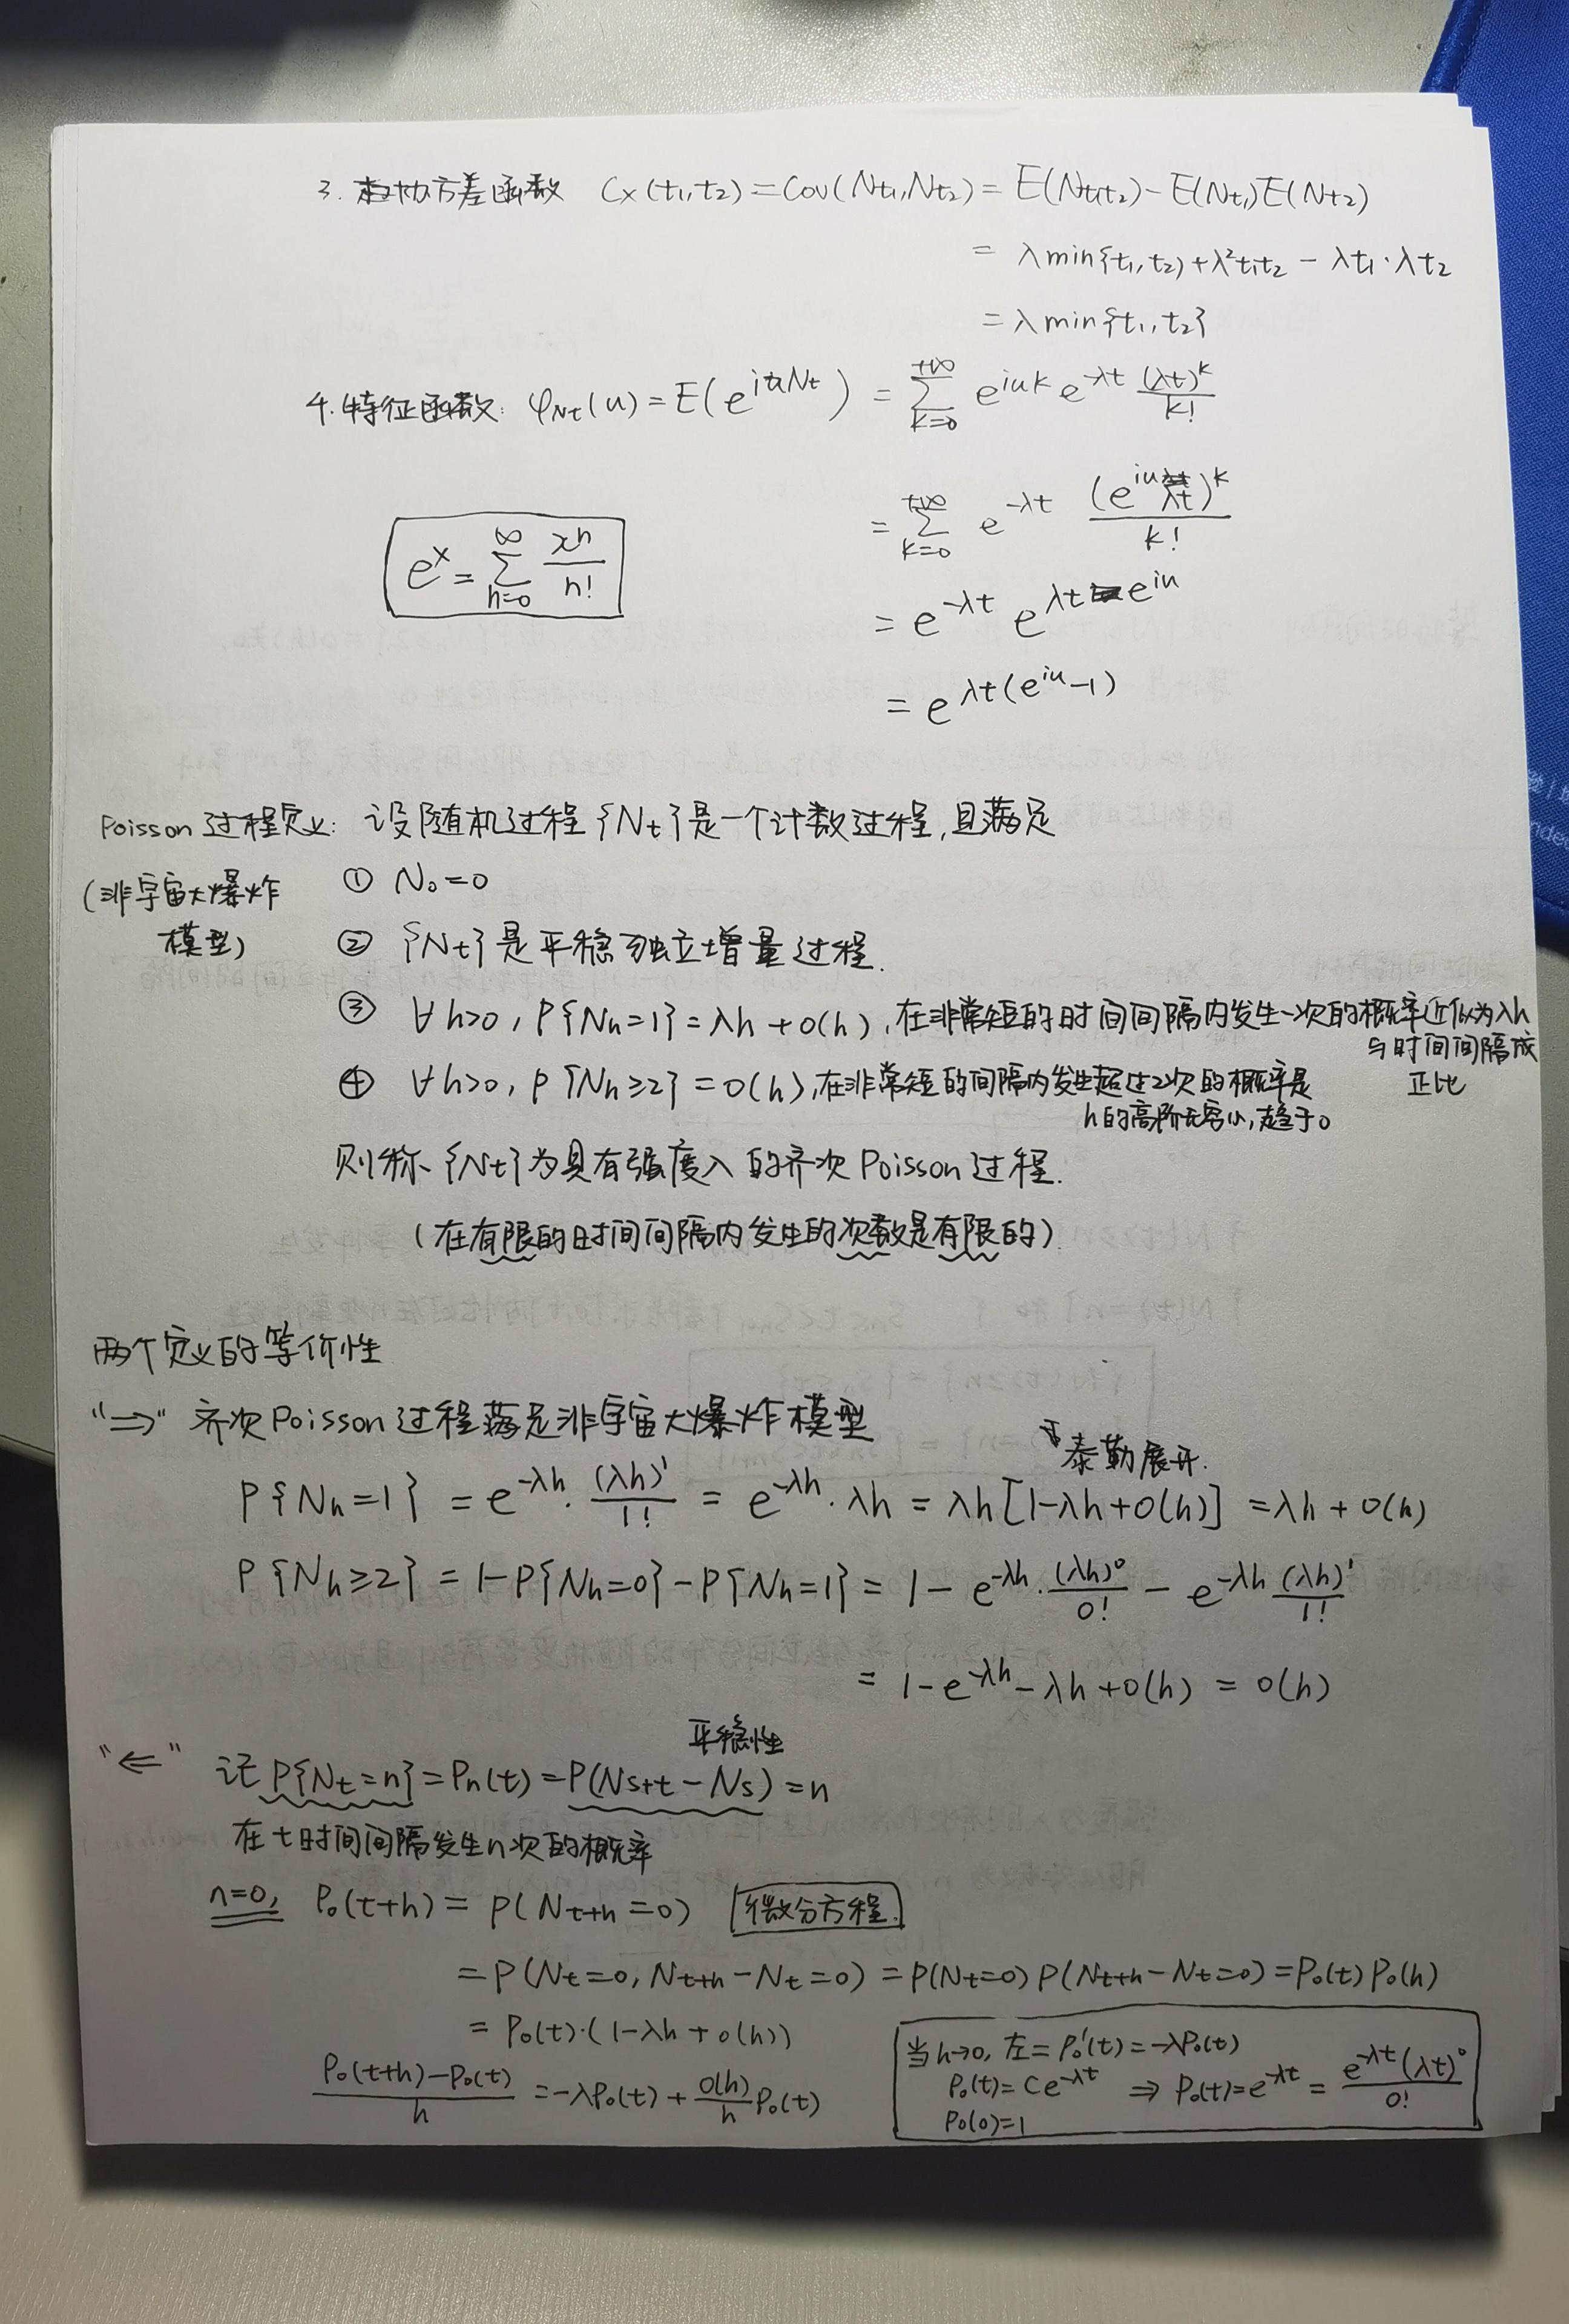 3. 协方差函数 Cx(t₁,t₂)=Cov(Nt₁,Nt₂)=E(Nt₁t₂)-E(Nt₁)E(Nt₂)
= λmin{t₁,t₂)+λ²t₁t₂ - λt₁·λt₂
= λmin{t₁,t₂}
4.特征函数: φ_Nt(u)=E(e^{iuNt}) = Σ_{k=0}^{+∞} e^{iuk} e^{-λt} (λt)^k/k!
= Σ_{k=0}^{+∞} e^{-λt} (e^{iu}λt)^k/k!
e^x = Σ_{n=0}^{∞} x^n/n!
= e^{-λt} e^{λt e^{iu}}
= e^{λt(e^{iu}-1)}
Poisson过程定义: 设随机过程{Nt}是一个计数过程,且满足
(非宇宙大爆炸
模型)
① N₀=0
② {Nt}是平稳独立增量过程.
③ ∀h>0, P{Nh=1}=λh+o(h), 在非常短的时间间隔内发生一次的概率近似为λh
与时间间隔成
正比
④ ∀h>0, P{Nh≥2}=o(h), 在非常短的间隔内发生超过2次的概率是
h的高阶无穷小,趋于0
则称{Nt}为具有强度λ的齐次Poisson过程.
(在有限的时间间隔内发生的次数是有限的)
两个定义的等价性
"⇒" 齐次Poisson过程满足非宇宙大爆炸模型
泰勒展开.
P{Nh=1} = e^{-λh}·(λh)^1/1! = e^{-λh}·λh = λh[1-λh+o(h)] = λh+o(h)
P{Nh≥2} = 1-P{Nh=0}-P{Nh=1} = 1 - e^{-λh}·(λh)^0/0! - e^{-λh} (λh)^1/1!
= 1-e^{-λh}-λh+o(h) = o(h)
平稳性
"⇐" 记P{Nt=n}=Pn(t)=P(Ns+t-Ns)=n
在t时间间隔发生n次的概率
n=0, P₀(t+h) = P(Nt+h=0) 微分方程.
= P(Nt=0, Nt+h-Nt=0) = P(Nt=0)P(Nt+h-Nt=0)=P₀(t)P₀(h)
= P₀(t)·(1-λh+o(h))
(P₀(t+h)-P₀(t))/h = -λP₀(t)+o(h)/h P₀(t)
当h→0, 左=P₀'(t)=-λP₀(t)
P₀(t)=Ce^{-λt} ⇒ P₀(t)=e^{-λt} = e^{-λt}(λt)^0/0!
P₀(0)=1